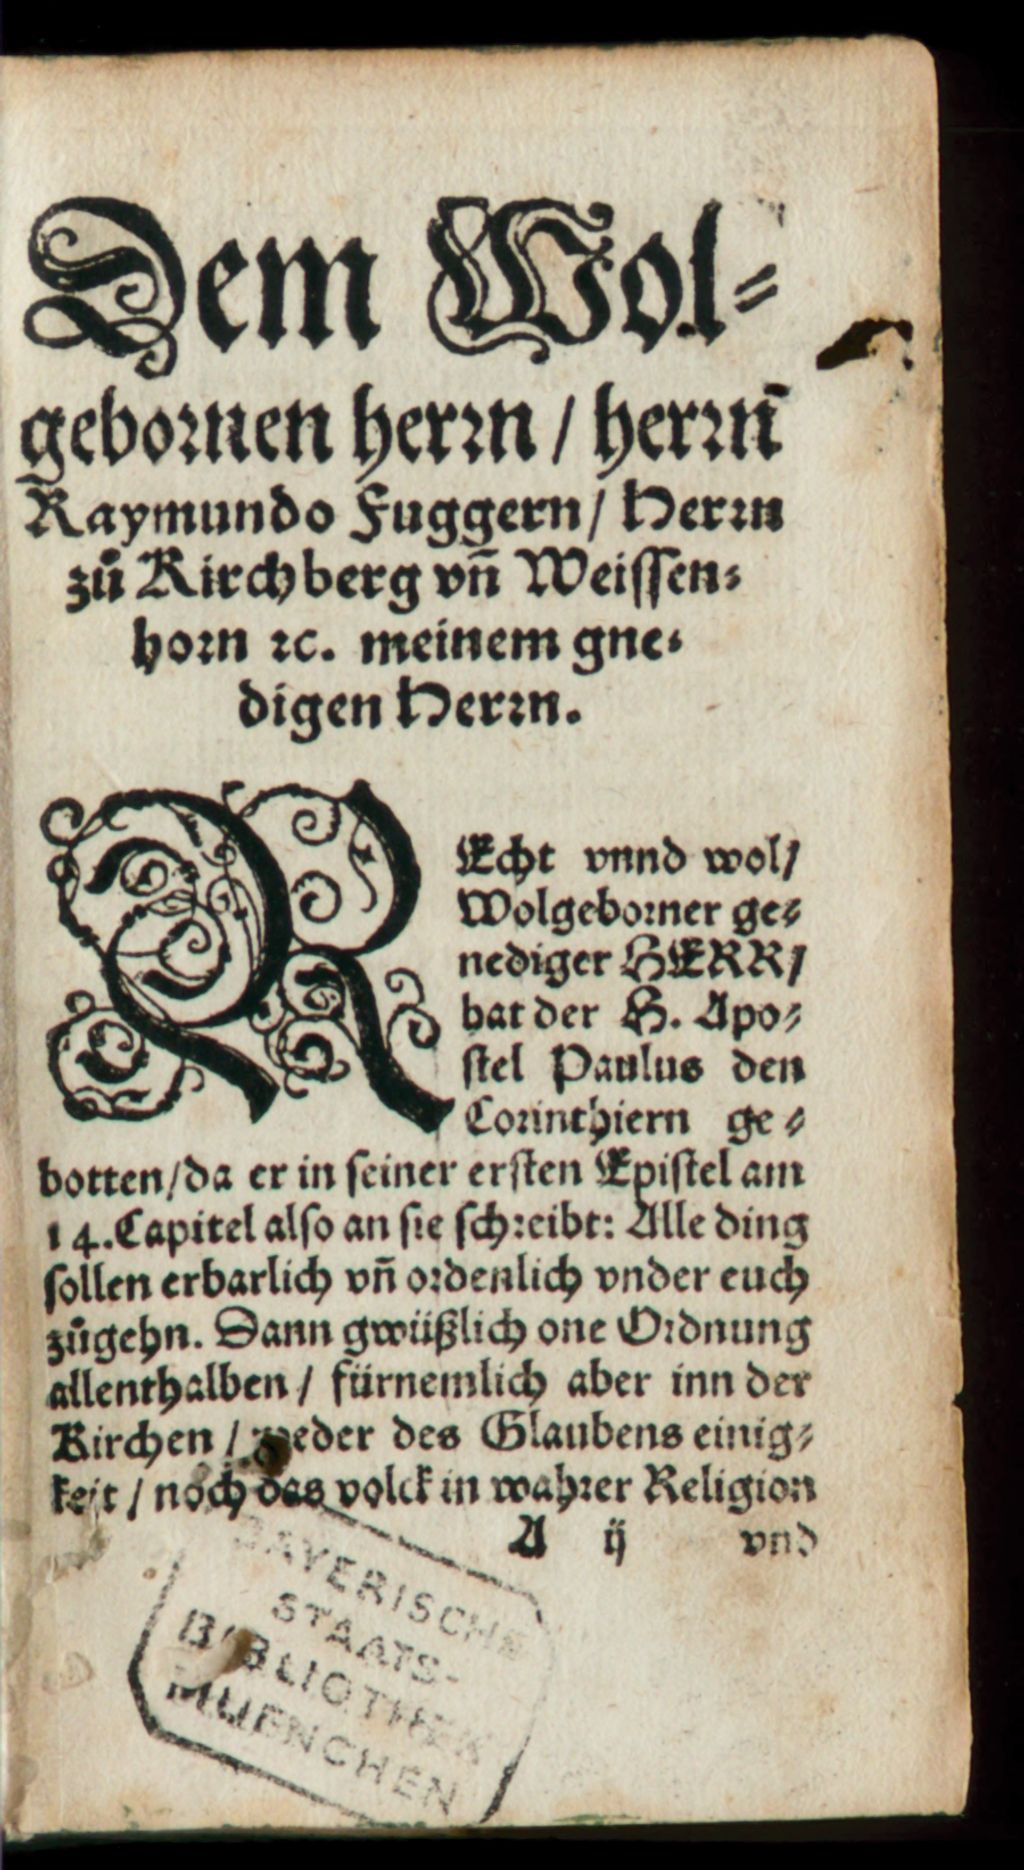 Dem Wol-
gebornen herrn / herrn̄
Raymundo Fuggern / Herrn
zů Kirchberg vn̄ Weissen-
horn ꝛc. meinem gne-
digen Herrn.
REcht vnnd wol /
Wolgeborner ge-
nediger HERR /
hat der H. Apo-
stel Paulus den
Corinthiern ge-
botten / da er in seiner ersten Epistel am
14. Capitel also an sie schreibt: Alle ding
sollen erbarlich vn̄ ordenlich vnder euch
zůgehn. Dann gwüßlich one Ordnung
allenthalben / fürnemlich aber inn der
Kirchen / weder des Glaubens einig-
keit / noch das volck in wahrer Religion
A ij vnd
BAYERISCHE
STAATS-
BIBLIOTHEK
MUENCHEN